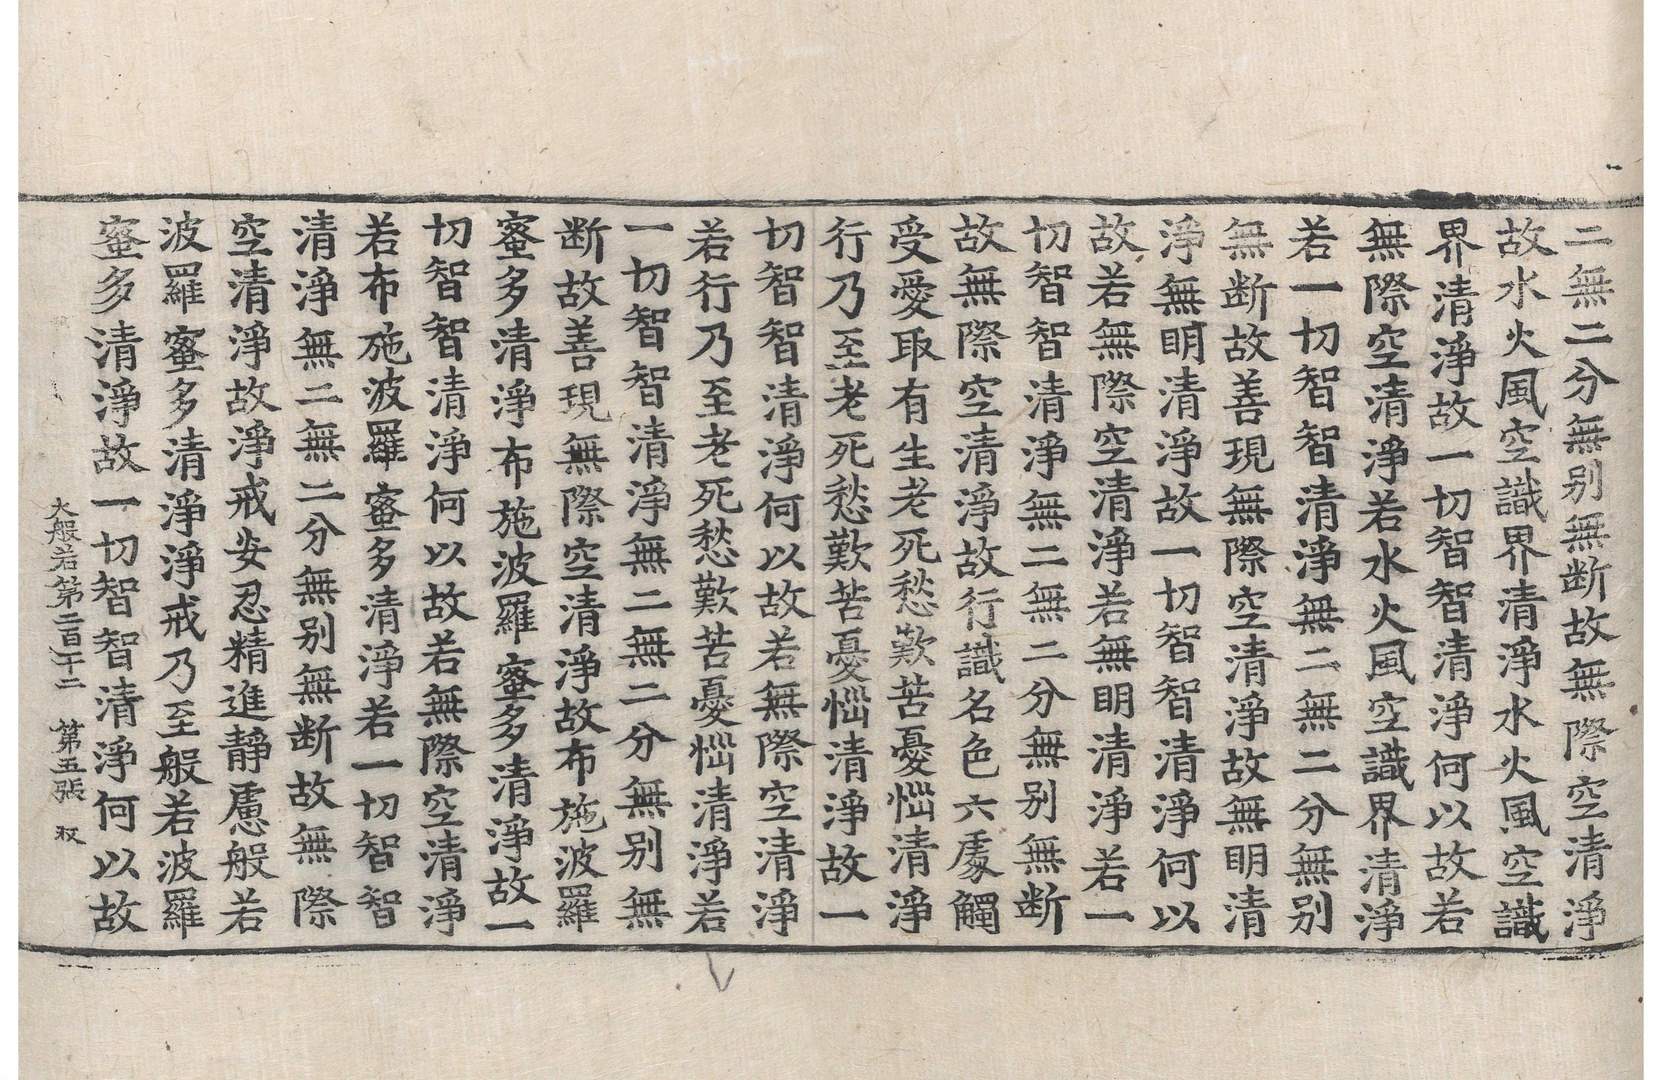 二無二分無别無断故無際空清淨
故水火風空識界清淨水火風空識
界清淨故一切智智清淨何以故若
無際空清淨若水火風空識界清淨
若一切智智清淨無二無二分無别
無断故善現無際空清淨故無眀清
淨無眀清淨故一切智智清淨何以
故若無際空清淨若無眀清淨若一
切智智清淨無二無二分無别無断
故無際空清淨故行識名色六處觸
受愛取有生老死愁歎苦憂惱清淨
行乃至老死愁歎苦憂惱清淨故一
切智智清淨何以故若無際空清淨
若行乃至老死愁歎苦憂惱清淨若
一切智智清淨無二無二分無别無
断故善現無際空清淨故布施波羅
蜜多清淨布施波羅蜜多清淨故一
切智智清淨何以故若無際空清淨
若布施波羅蜜多清淨若一切智智
清淨無二無二分無别無断故無際
空清淨故淨戒安忍精進靜慮般若
波羅蜜多清淨淨戒乃至般若波羅
蜜多清淨故一切智智清淨何以故
大般若第二百十二 第五張